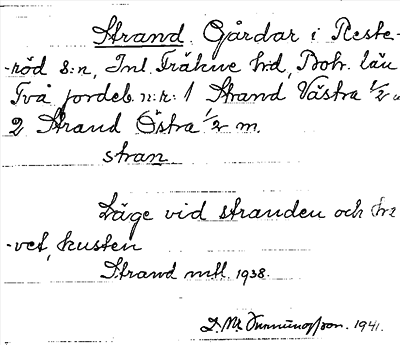 Strand. Gårdar i Reste-
-röd s:n, Inl. Fräkne hd, Boh. län
Två jordeb. n:r: 1 Strand Västra 1/2 
2 Strand Östra 1/2 m.
stran
Läge vid stranden och
-vet, kusten
Strand mtl. 1938.
1941.